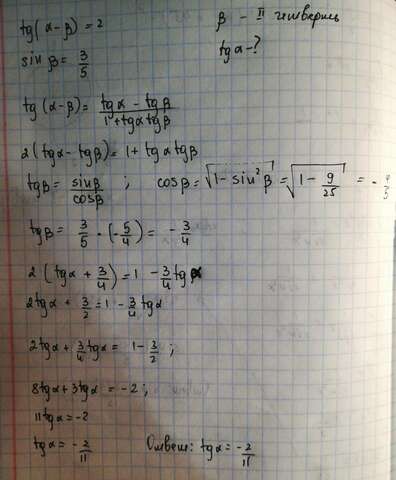 tg(α-β) = 2    β - II четверть
sin β = 3/5    tgα - ?
tg(α-β) = (tgα - tgβ)/(1 + tgα tgβ)
2(tgα - tgβ) = 1 + tgα tgβ
tgβ = sinβ/cosβ ; cosβ = √(1 - sin²β) = √(1 - 9/25) = - 4/5
tgβ = 3/5 · (-5/4) = - 3/4
2(tgα + 3/4) = 1 - 3/4 tgα
2tgα + 3/2 = 1 - 3/4 tgα
2tgα + 3/4 tgα = 1 - 3/2 ;
8tgα + 3tgα = -2 ;
11tgα = -2
tgα = - 2/11    Ответ: tgα = - 2/11